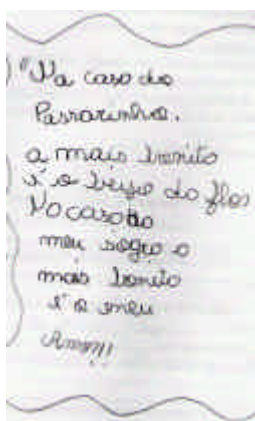 "Na caso do
Passarinho.
a mais bonito
é o beija do flor
No caso do
meu sogro o
mais bonito
é o meu
Amor!!